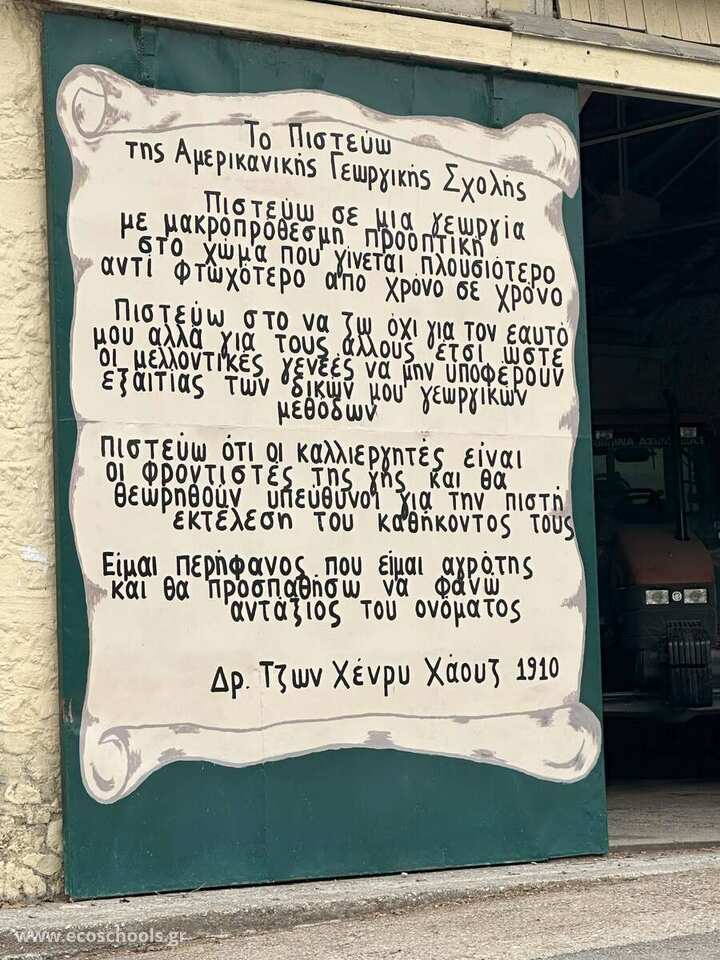 Το Πιστεύω
της Αμερικανικής Γεωργικής Σχολής
Πιστεύω σε μια γεωργία
με μακροπρόθεσμη προοπτική
στο χώμα που γίνεται πλουσιότερο
αντί φτωχότερο από χρόνο σε χρόνο
Πιστεύω στο να ζω όχι για τον εαυτό
μου αλλά για τους άλλους έτσι ώστε
οι μελλοντικές γενεές να μην υποφέρουν
εξαιτίας των δικών μου γεωργικών
μεθόδων
Πιστεύω ότι οι καλλιεργητές είναι
οι φροντιστές της γης και θα
θεωρηθούν υπεύθυνοι για την πιστή
εκτέλεση του καθήκοντος τους
Είμαι περήφανος που είμαι αγρότης
και θα προσπαθήσω να φανώ
αντάξιος του ονόματος
Δρ. Τζων Χένρυ Χάουζ 1910
www.ecoschools.gr